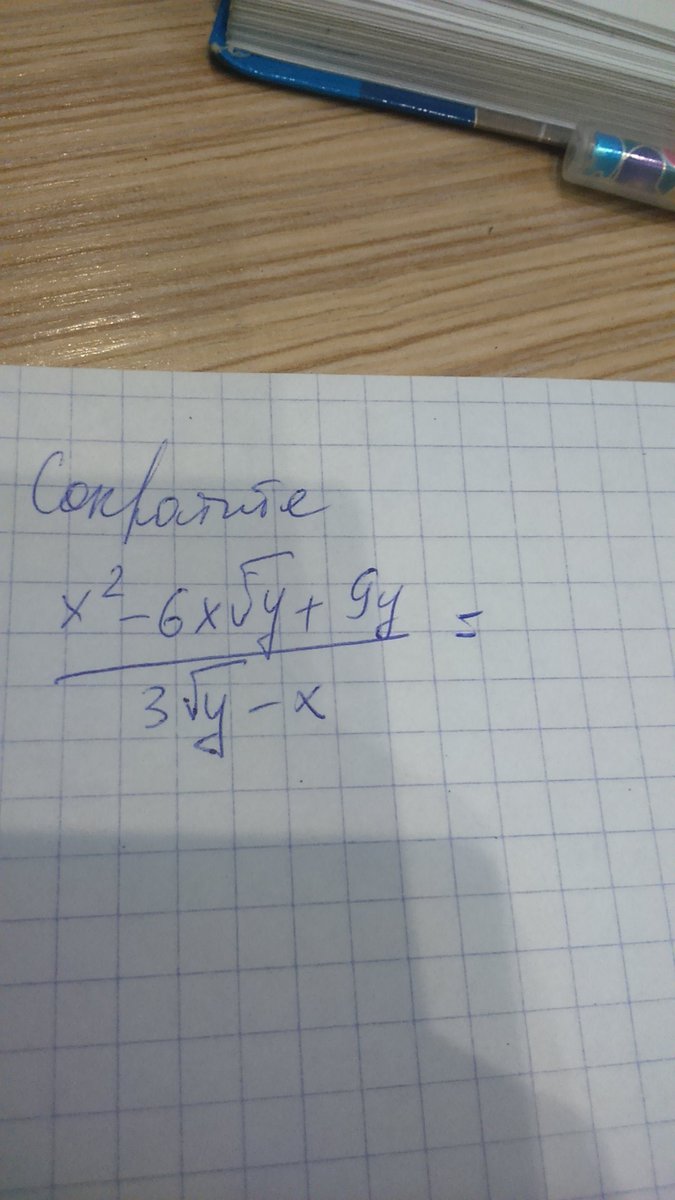 Сократите
x² - 6x√y + 9y =
3√y - x